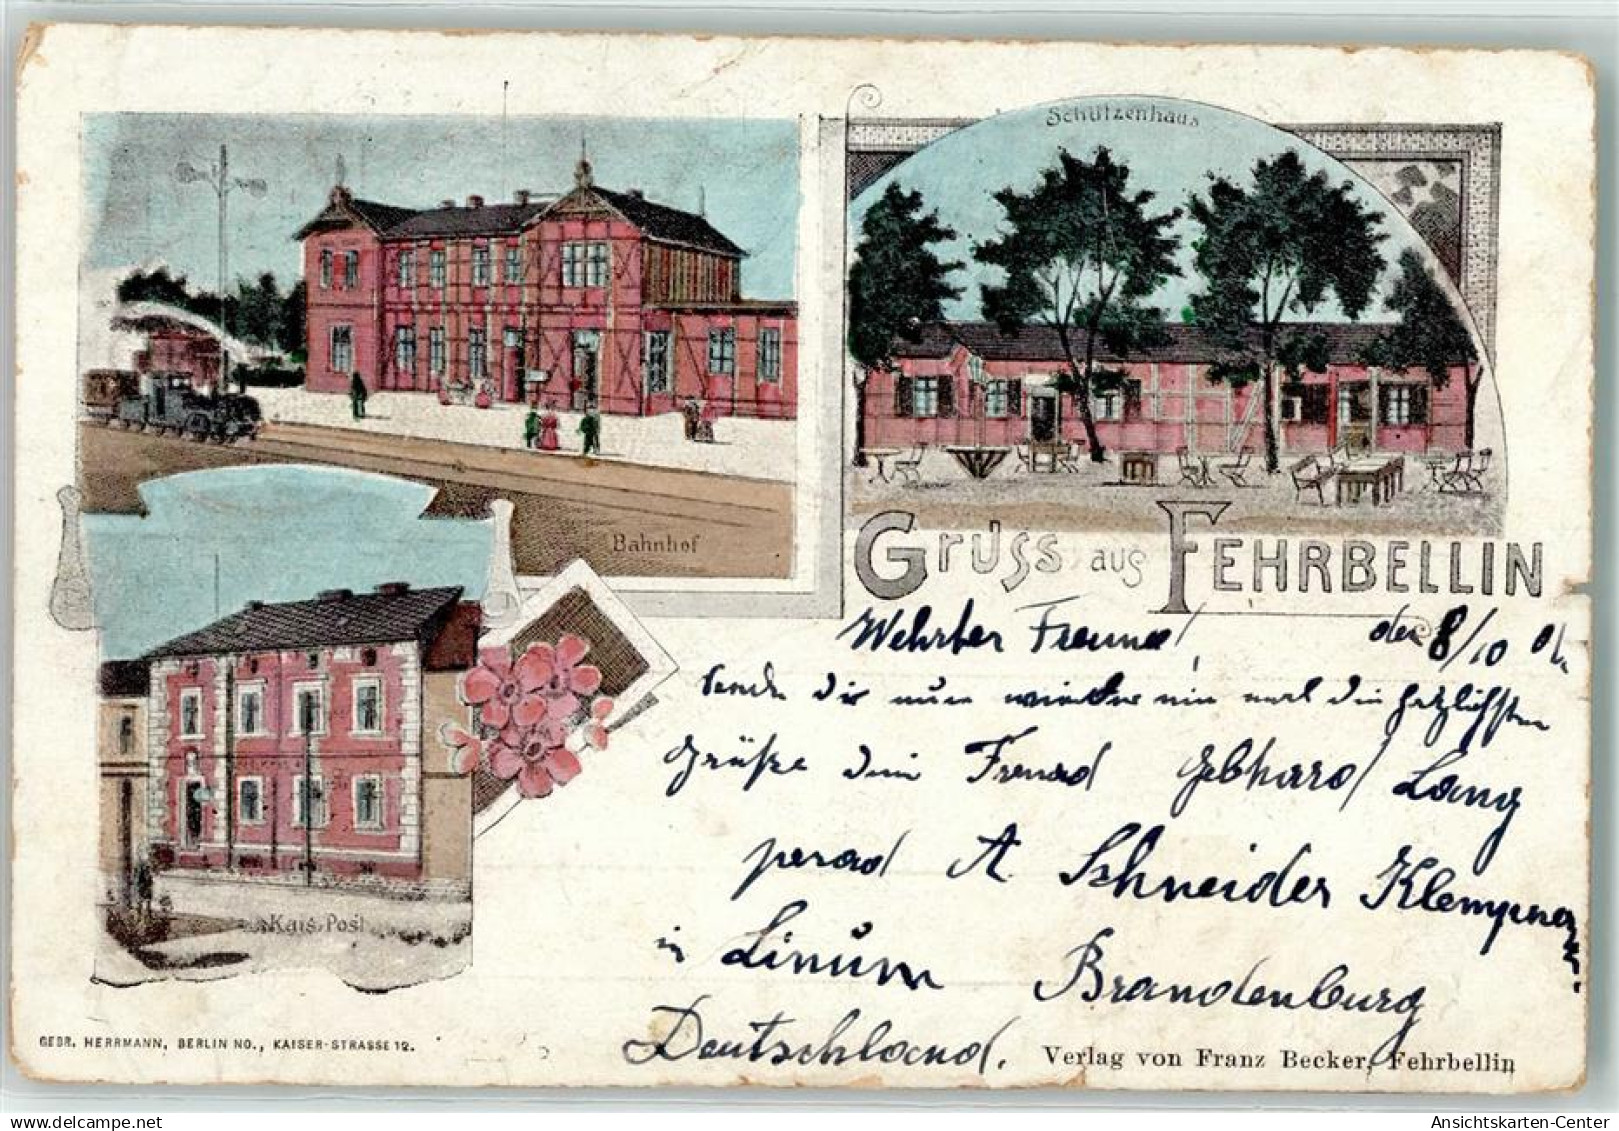 Schützenhaus
Bahnhof
Gruss aus Fehrbellin
Kais. Post
Wehrter Freund! den 8/10 01.
Sende dir nun wieder ein mal die herzlichsten
Grüße dein Freund Gebhard Lang
per ad A. Schneider Klempnerm.
in Linum Brandenburg
Deutschland.
GEBR. HERRMANN, BERLIN NO., KAISER-STRASSE 12.
Verlag von Franz Becker, Fehrbellin
Ansichtskarten-Center